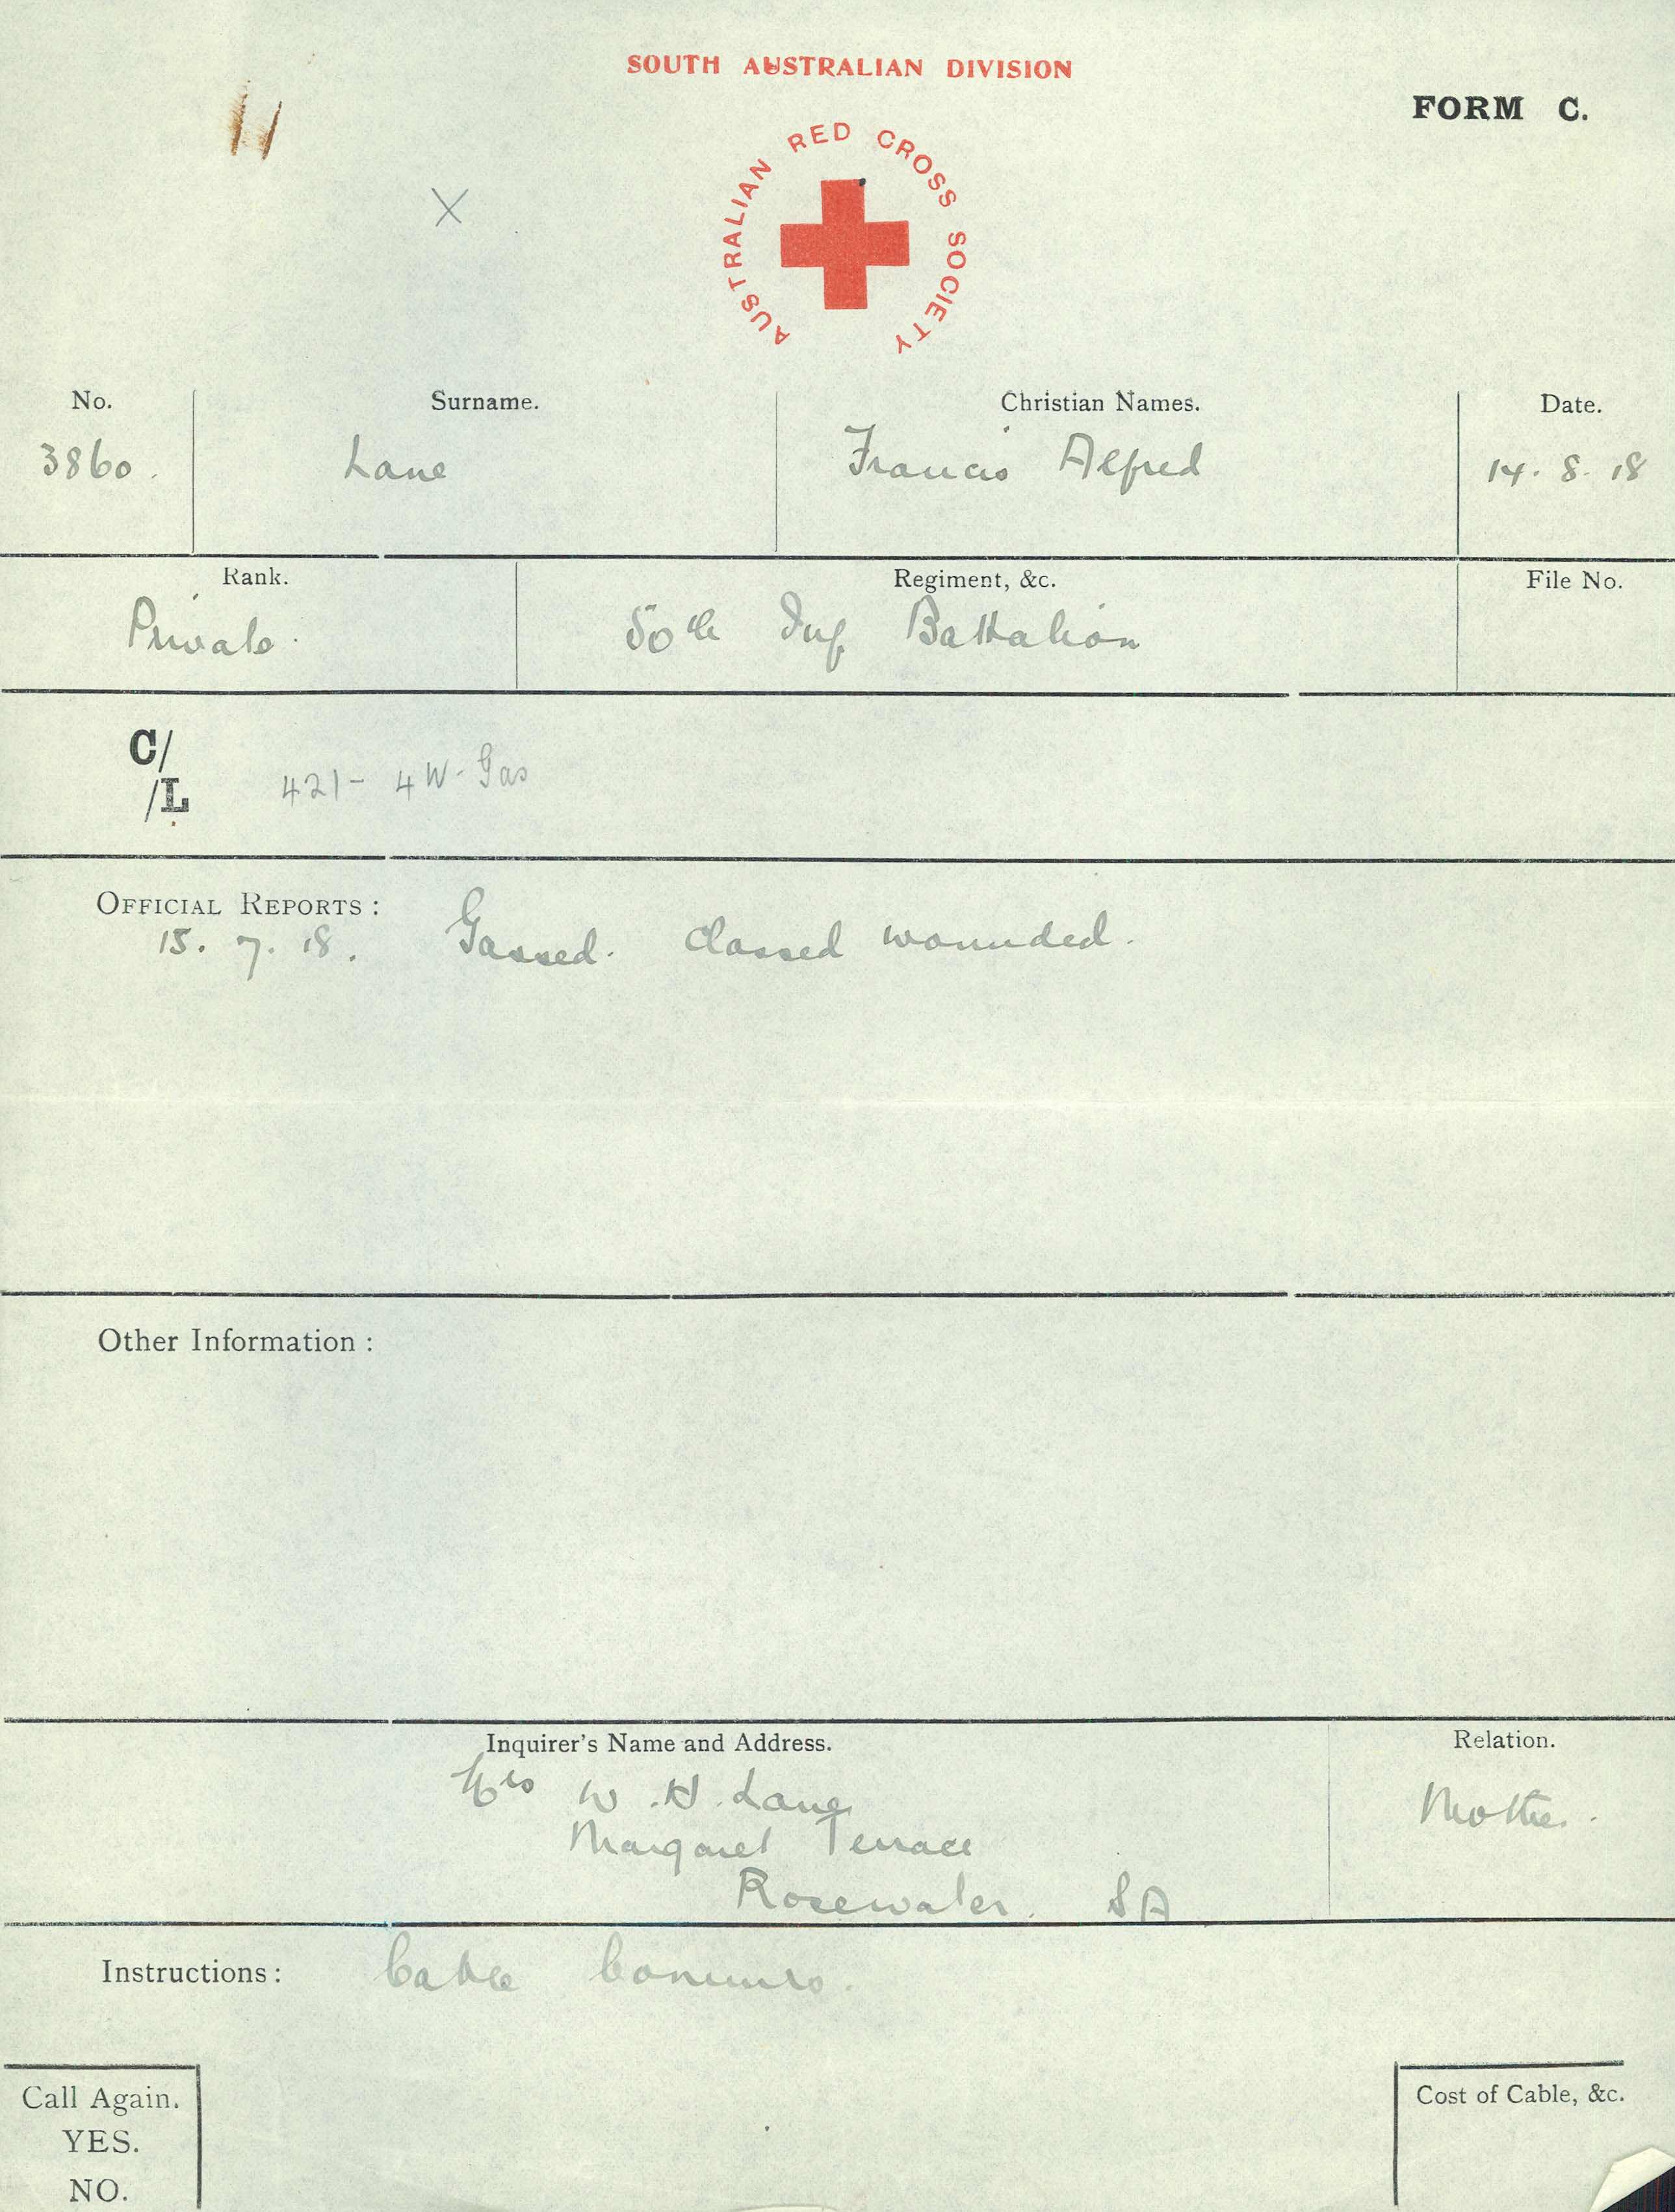 SOUTH AUSTRALIAN DIVISION
FORM C.
AUSTRALIAN RED CROSS SOCIETY
X
No. Surname. Christian Names. Date.
3860. Lane Francis Alfred 14. 8. 18
Rank. Regiment, &c. File No.
Private. 50th Inf Battalion
C/
/L 421- 4 W- Gas
OFFICIAL REPORTS:
15. 7. 18. Gassed. Classed wounded.
Other Information:
Inquirer's Name and Address. Relation.
Mrs W. H. Lane Mother.
Margaret Terrace
Rosewater. SA
Instructions: Cable
Call Again. Cost of Cable, &c.
YES.
NO.